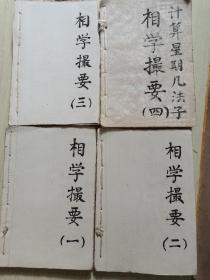 相学撮要
(三)
计算星期几法子
相学撮要
(四)
相学撮要
(一)
相学撮要
(二)